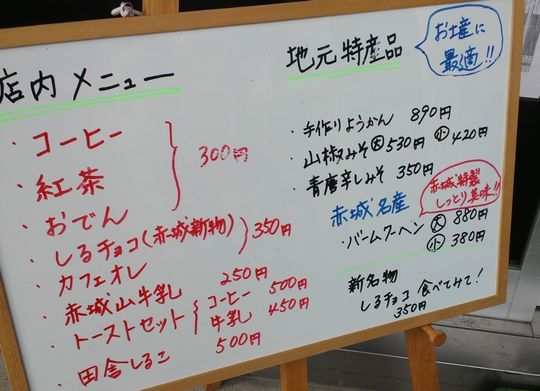 店内メニュー
・コーヒー
・紅茶
・おでん
300円
・しるチョコ(赤城新物)
・カフェオレ
350円
・赤城山牛乳 250円
・トーストセット
コーヒー 500円
牛乳 450円
・田舎しるこ 500円
地元特産品
お土産に
最高!!
・手作りようかん 890円
・山椒みそ 大 530円 小 420円
・青唐辛しみそ 350円
赤城名産
赤城特製
しっとり美味!!
・バームクーヘン 大 880円
小 380円
新名物
しるチョコ 食べてみて!
350円